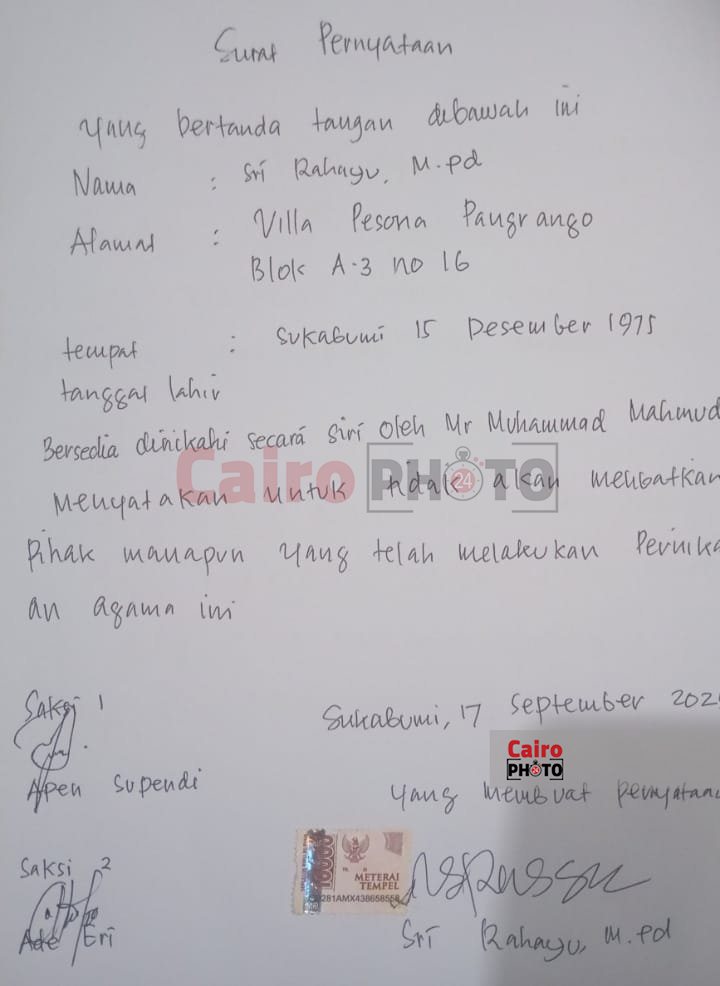 Surat Pernyataan
Yang bertanda tangan dibawah ini
Nama : Sri Rahayu, M.pd
Alamat : Villa Pesona Pangrango
Blok A-3 no 16
tempat : Sukabumi 15 Desember 1975
tanggal lahir
Bersedia dinikahi secara siri oleh Mr Muhammad Mahmud
Cairo PHOTO 24
Menyatakan untuk tidak akan melibatkan
Pihak manapun yang telah melakukan Pernika
an agama ini
Saksi 1
Sukabumi, 17 September 202
Cairo
PHOTO
Apen Supendi
Yang membuat pernyataan
Saksi 2
10000
METERAI
TEMPEL
281AMX438658558
Ade Eri
Sri Rahayu, M.pd